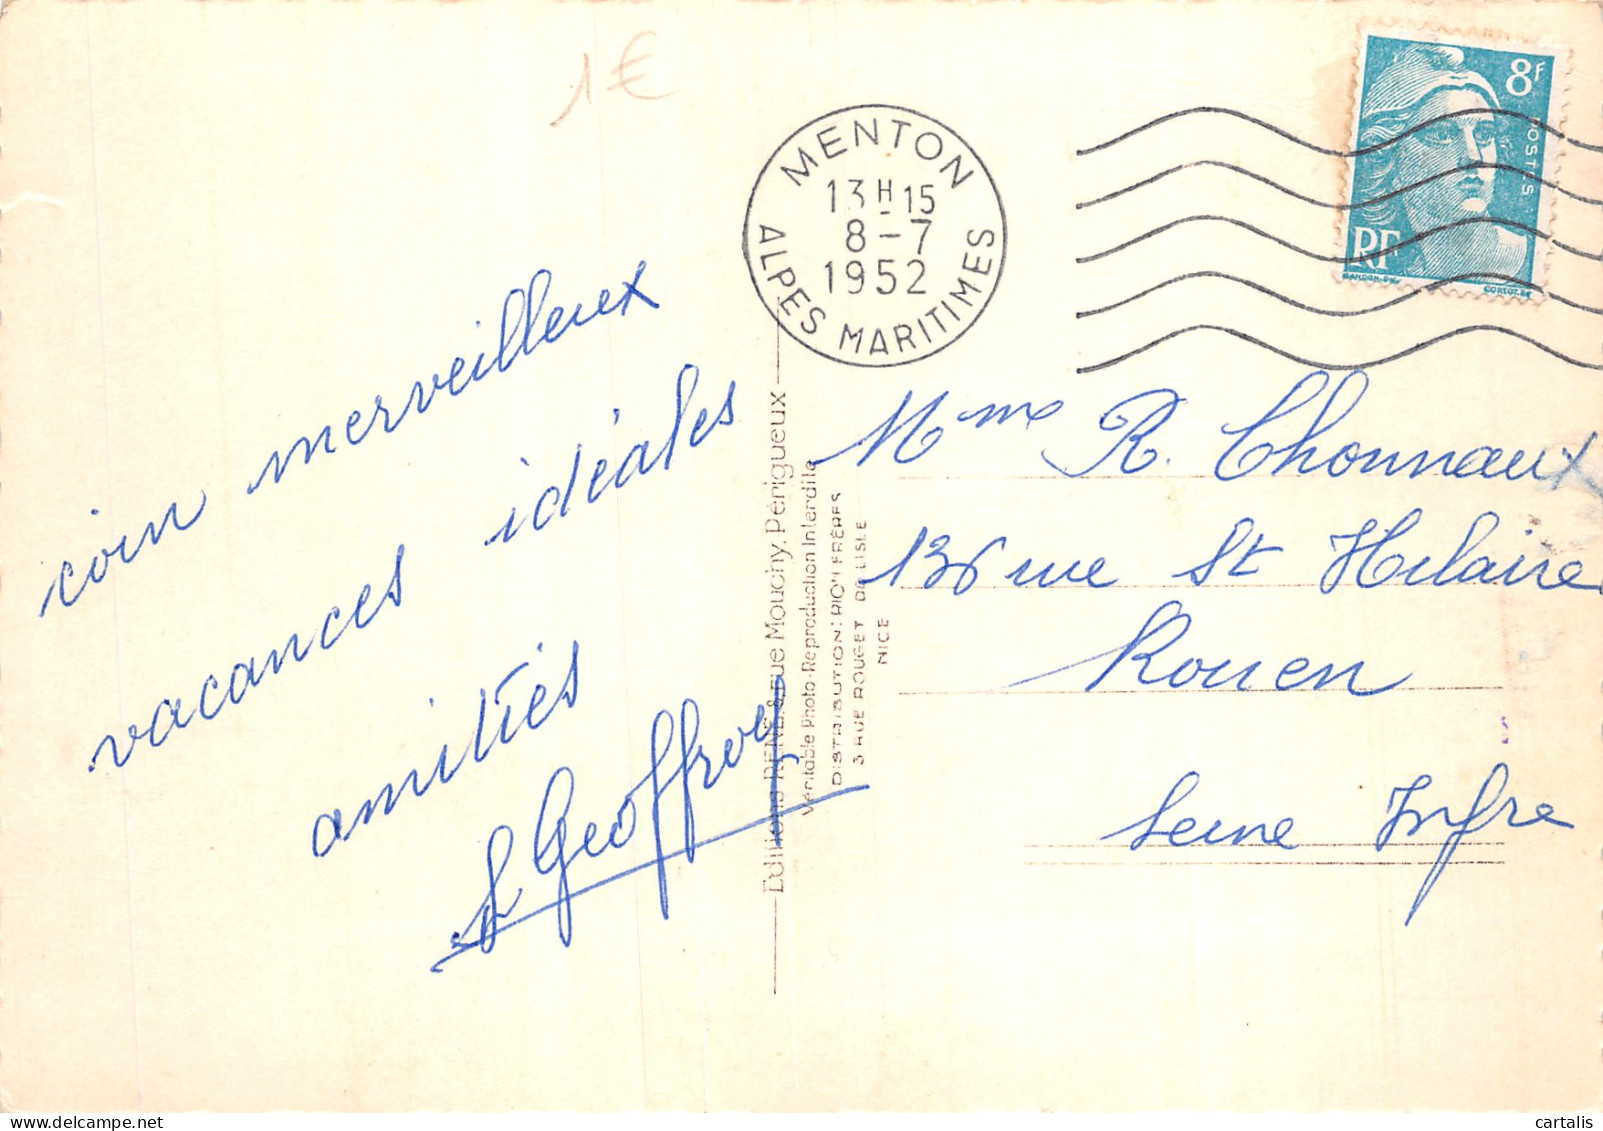 1€
MENTON
13H15
8-7
1952
ALPES MARITIMES
8F
POSTES
RF
GANDON.DEL
CORTOT.SC
coin merveilleux
vacances idéales
amitiés
Geoffroy
Editions RENÉ 8, rue Mouchy, Périgueux
Véritable Photo-Reproduction Interdite
DISTRIBUTION: FRÈRES
3 RUE ROUGET DE LISLE
NICE
Mme R. Chonnaux
136 rue St Hilaire
Rouen
Seine Infre
cartalis
delcampe.net